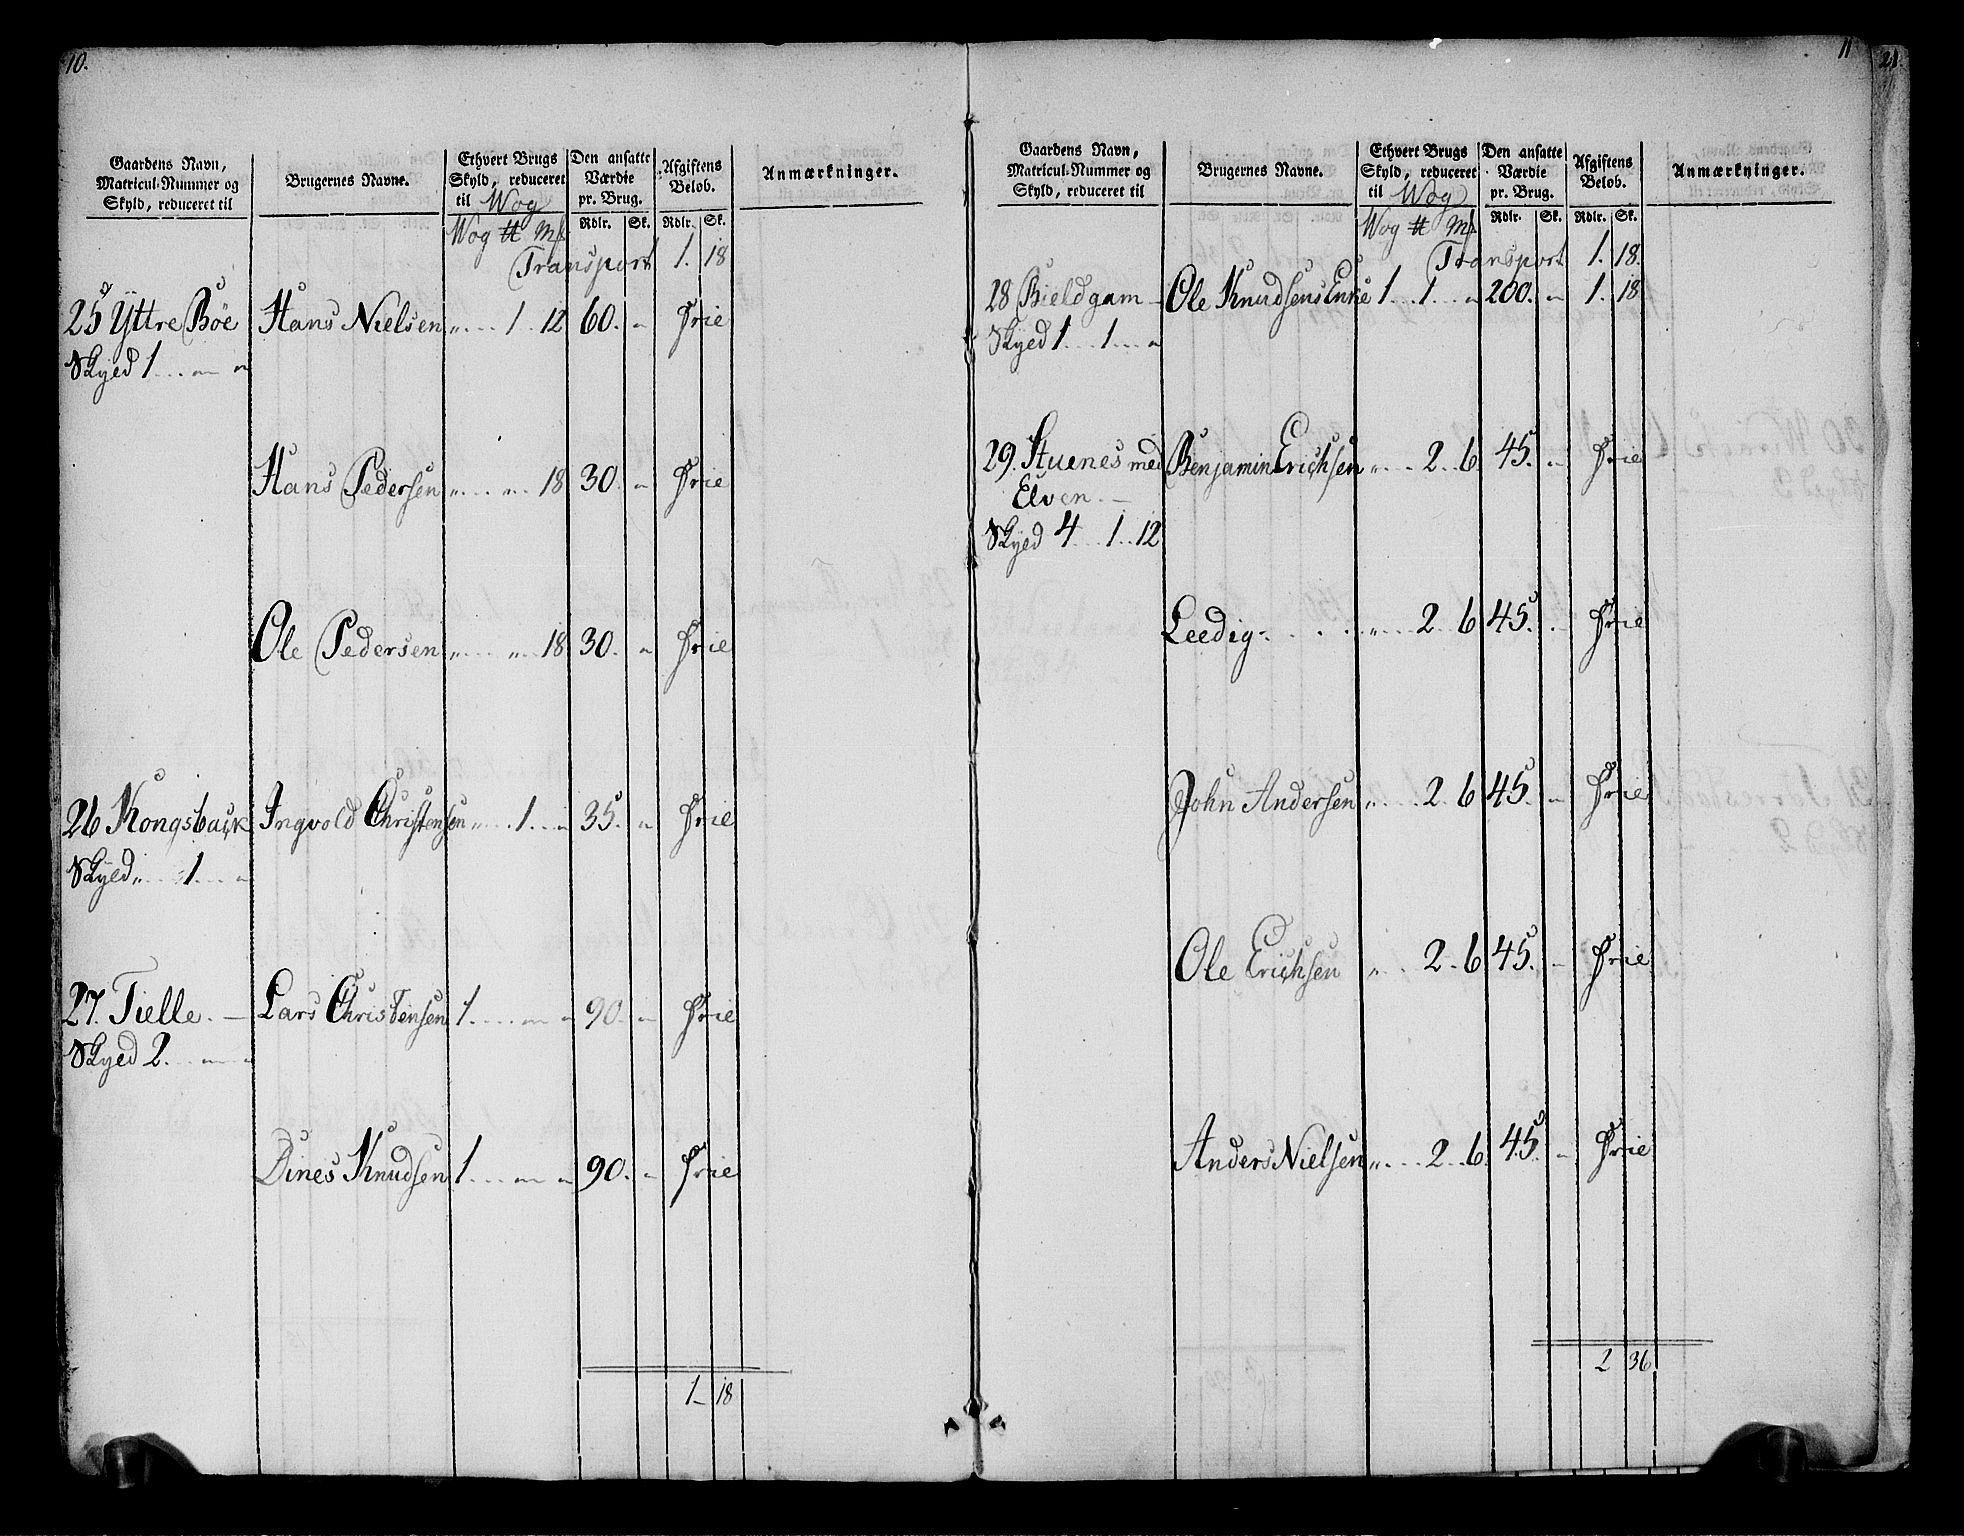 10.
Gaardens Navn, Matricul-Nummer og Skyld, reduceret til | Brugernes Navne. | Ethvert Brugs Skyld, reduceret til Wog | Den ansatte Værdie pr. Brug. | Afgiftens Belob. | Anmærkninger.
Wog ℔ Mk | Rdlr. Sk. | Rdlr. Sk.
Transport 1. 18
25 Yttre Böe Hans Nielsen „ .... 1 .. 12 60. „ Frie
Skyed 1 ... „ „
Hans Pedersen „ .... „ .. 18 30. „ Frie
Ole Pedersen „ .... „ .. 18 30. „ Frie
26 Kongsback Ingvold Christensen „ .... 1 ... „ 35. „ Frie
Skyed „ .... 1 ... „
27. Tielle. — Lars Christensen 1 .... „ „ 90. „ Frie
Skyed 2. ... „ „
Dines Knudsen 1 .... „ „ 90. „ Frie
1 18
11
21.
Gaardens Navn, Matricul-Nummer og Skyld, reduceret til | Brugernes Navne. | Ethvert Brugs Skyld, reduceret til Wog | Den ansatte Værdie pr. Brug. | Afgiftens Belob. | Anmærkninger.
Wog ℔ Mk | Rdlr. Sk. | Rdlr. Sk.
Transport 1. 18.
28 Bieldgam — Ole Knudsens Enke 1 ... 1 ... „ 200. „ 1. 18
Skyed 1 ... 1 ... „
29. Stuenes med Benjamin Erichsen „ .... 2 .. 6 45. „ Frie
Elven. —
Skyed 4 ... 1 .. 12
Leedig. . . . . „ .... 2 .. 6 45. „ Frie
John Andersen „ .... 2 .. 6 45. „ Frie
Ole Erichsen „ .... 2 .. 6 45. „ Frie
Anders Nielsen „ .... 2 .. 6 45. „ Frie
2 36